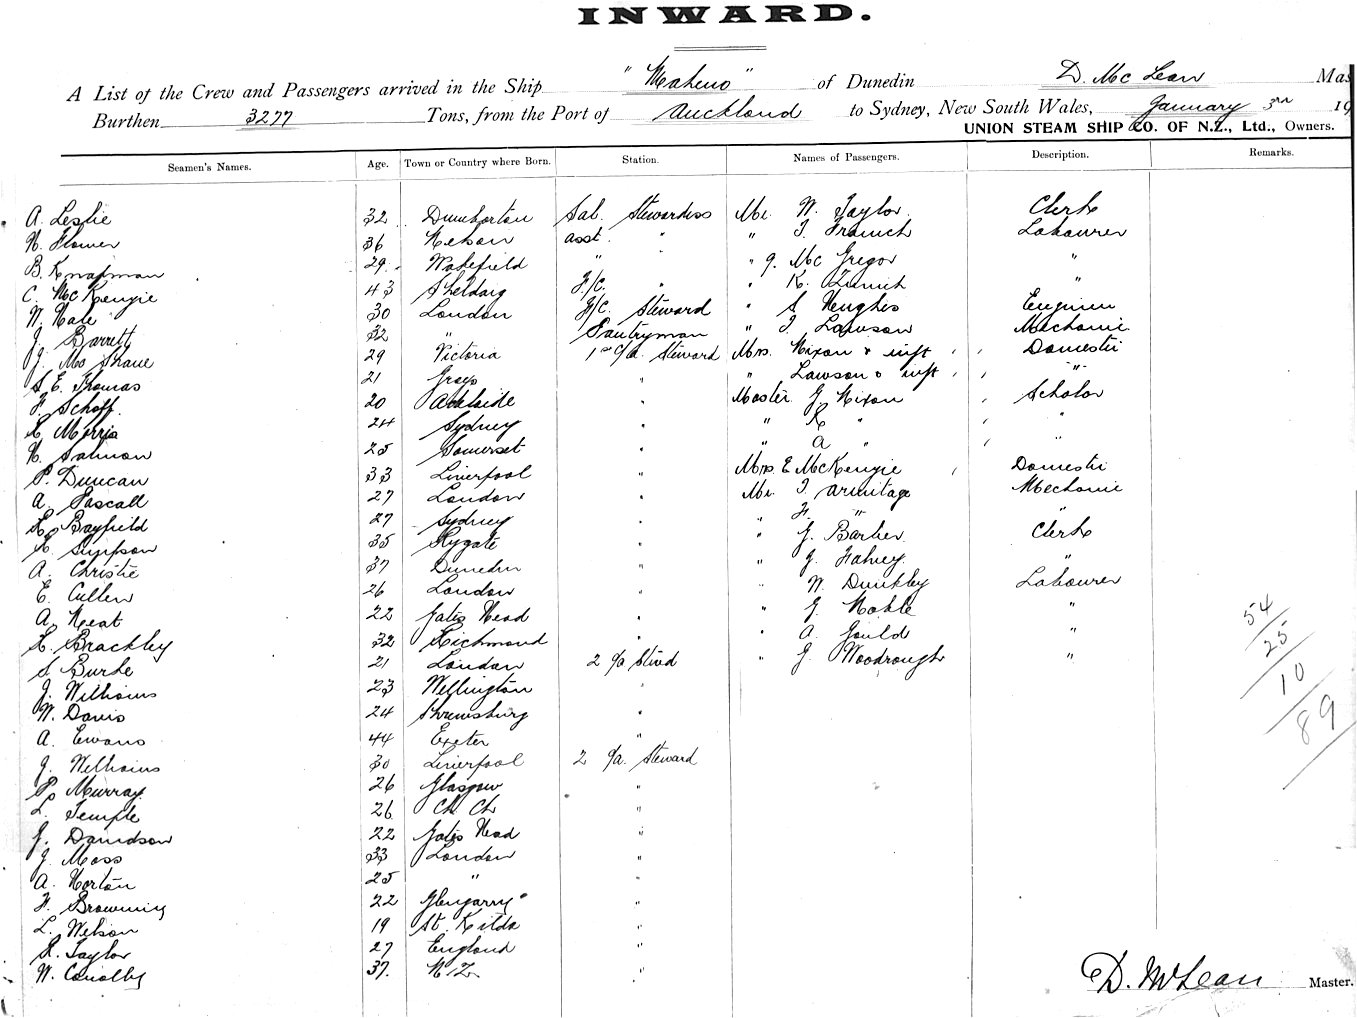 INWARD.
A List of the Crew and Passengers arrived in the Ship "Maheno" of Dunedin D. McLean Mas
Burthen 3277 Tons, from the Port of Auckland to Sydney, New South Wales, January 3rd 19
UNION STEAM SHIP CO. OF N.Z., Ltd., Owners.
Seamen's Names. Age. Town or Country where Born. Station. Names of Passengers. Description. Remarks.
A. Leslie 32 Dumbarton Sal. Stewardess Mr. W. Taylor Clerk
36 Nelson asst. " " T. Labourer
B. Knapman 29 Wakefield " " " J. McGregor "
C. McKenzie 43 F/C. " " K. "
30 London F/C. Steward " S. Hughes Engineer
J. Barrett 32 " Pantryman " T. Lawson Mechanic
J. McShane 29 Victoria 1st C/a. Steward Mrs. Nixon & inft Domestic
S. E. Thomas 21 Grays " " Lawson & inft "
F. Schoff. 20 Adelaide " Master J. Nixon Scholar
Morris 24 Sydney " " R " "
Salmon 25 Somerset " " A " "
P. Duncan 33 Liverpool " Mrs. E. McKenzie Domestic
A. Pascall 27 London " Mr. T. Armitage Mechanic
Bayfield 27 Sydney " " F. " "
Simpson 35 Rygate " " G. Barber Clerk
A. Christie 37 Dunedin " " J. Fahey "
E. Cullen 26 London " " W. Dunkley Labourer
A. Neat 22 Gates Head " " J. "
Brackley 32 Richmond " " A. Gould "
S. Burke 21 London 2 C/a Stwd " J. Woodrough "
J. Williams 23 Wellington "
W. Davis 24 Shrewsbury "
A. Ewans 44 Exeter "
J. Williams 30 Liverpool 2 C/a. Steward
P. Murray 26 Glasgow "
L. Temple 26 Ch Ch "
J. Davidson 22 Gates Head "
J. Moss 33 London "
A. Norton 25 " "
F. Browning 22 Glengarry "
L. Nelson 19 St. Kilda "
Taylor 27 England "
W. Conolly 37. N.Z. "
54
25
10
89
D. McLean Master.